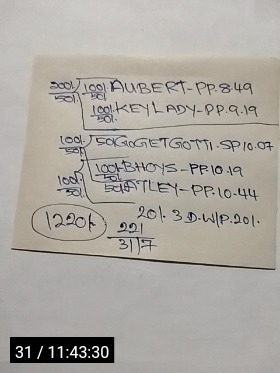 200/- 100/- AUBERT-PP.8.49
50/- 50/-
100/- KEYLADY-PP.9.19
50/-
100/- 50/- GOGETGOTTI-SP10.07
50/-
100/- BHOYS-PP.10.19
50/-
100/- 50/- ATLEY-PP.10.44
50/-
1220/- 20/- 3 D.W/P.20/-
221
31/7
31 / 11:43:30